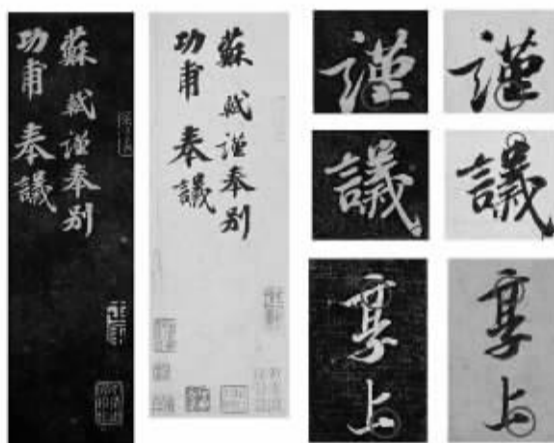 蘇軾謹奉別
功甫奉議
蘇軾謹奉別
功甫奉議
謹
謹
議
議
上
上